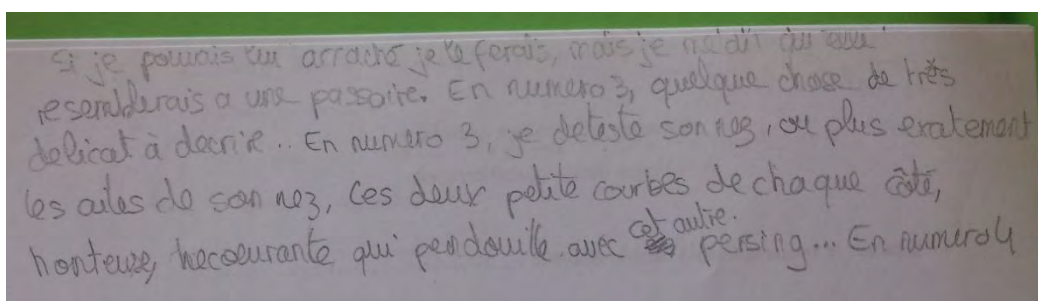 Si je pouvais lui arraché je le ferais, mais je me dit qu'elle
resemblerais a une passoire. En numero 3, quelque chose de très
delicat à decrire.. En numero 3, je deteste son nez, ou plus exatement
les ailes de son nez, ces deux petite courbes de chaque côté,
honteuse, hecoeurante qui pendouille avec cet autre persing... En numero 4